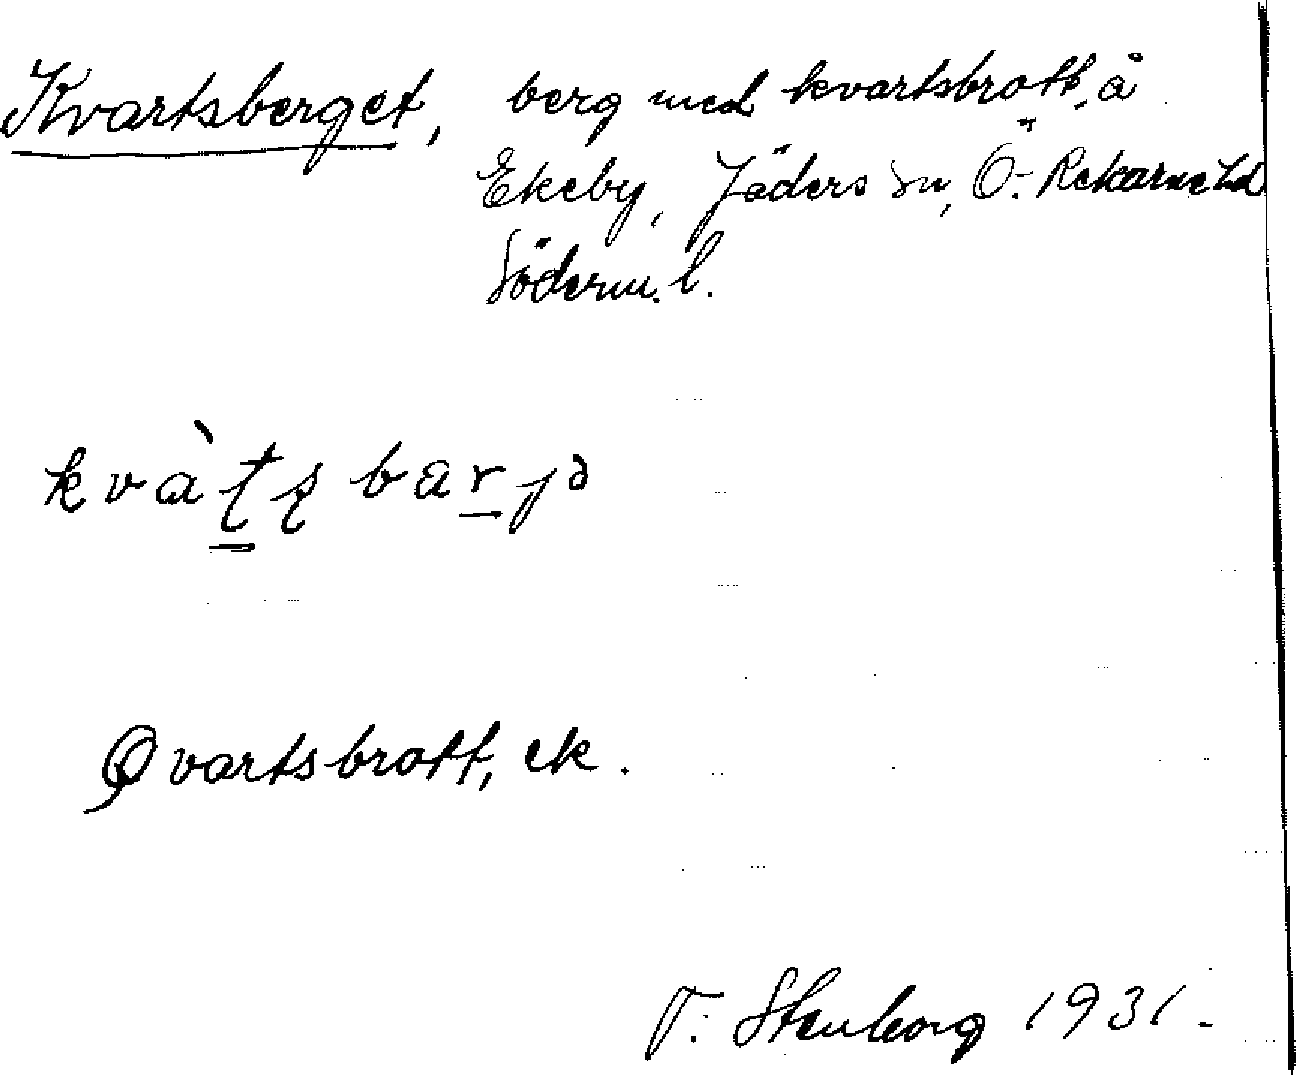 Kvartsberget, berg med kvartsbrott, å
Ekeby, Jäders sn, Ö. Rekarne hd
Söderm. l.
kvàʈʂbarjə
Qvartsbrott, ek.
T. Stenborg 1931.